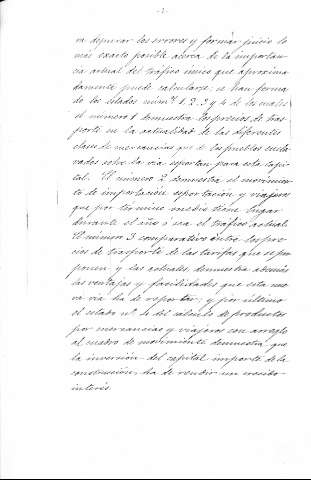 -2-
ra depurar los errores y formar juicio lo
mas exacto posible acerca de la importan-
cia actual del tráfico único que aproxima-
damente puede calcularse; se han forma-
do los estados núms. 1, 2, 3 y 4 de los cuales
el número 1 demuestra los precios de tras-
porte en la actualidad de las diferentes
clases de mercancias que de los pueblos
sobre la via esportan para esta Capi-
tal. El número 2 demuestra el movimien-
to de importacion esportacion y viajeros
que por término medio tiene lugar
durante el año ó sea el tráfico actual.
El número 3 comparativo entre los pre-
cios de trasporte de las tarifas que se pro-
ponen y las actuales, demuestra además
las ventajas y facilidades que esta nue-
va via ha de reportar; y por último
el estado nº 4 del cálculo de productos
por mercancias y viajeros con arreglo
al cuadro de movimiento demuestra que
la inversión del capital importe de la
construccion, ha de rendir un crecido
interés.